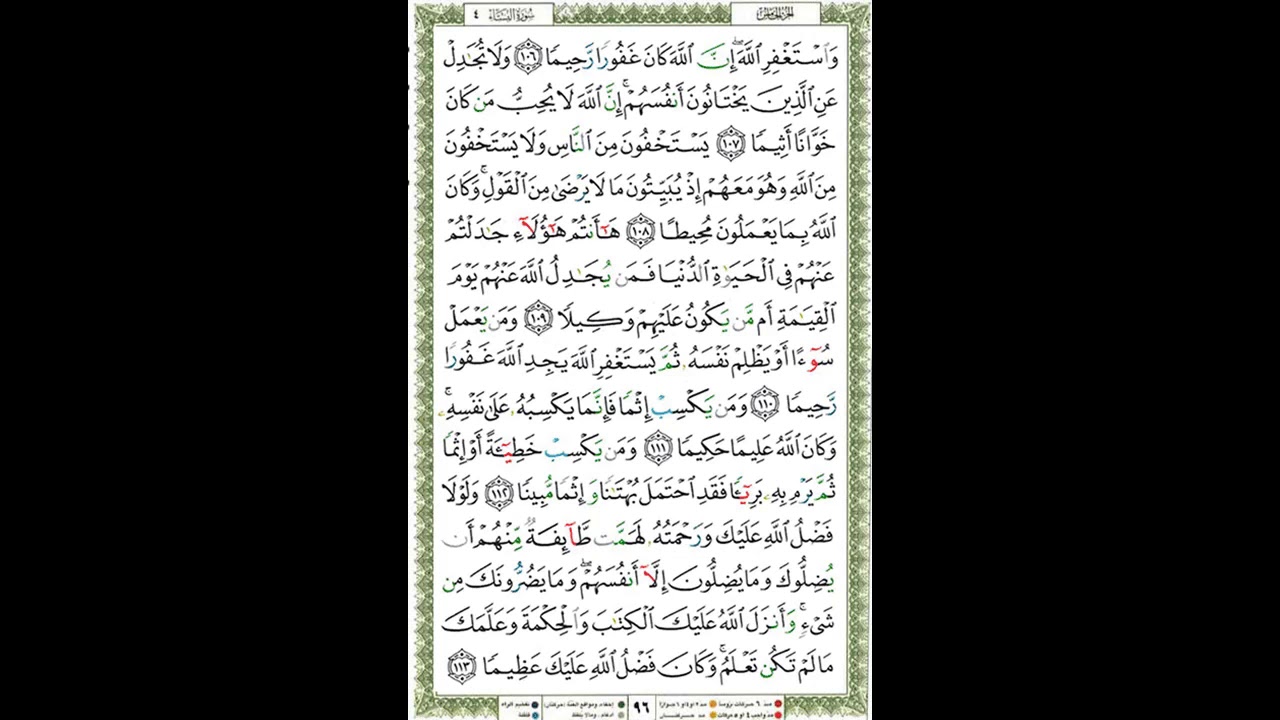 الجزء الخامس
سورة النساء ٤
وَاسْتَغْفِرِ اللَّهَ ۖ إِنَّ اللَّهَ كَانَ غَفُورًا رَّحِيمًا ١٠٦ وَلَا تُجَادِلْ
عَنِ الَّذِينَ يَخْتَانُونَ أَنفُسَهُمْ ۚ إِنَّ اللَّهَ لَا يُحِبُّ مَن كَانَ
خَوَّانًا أَثِيمًا ١٠٧ يَسْتَخْفُونَ مِنَ النَّاسِ وَلَا يَسْتَخْفُونَ
مِنَ اللَّهِ وَهُوَ مَعَهُمْ إِذْ يُبَيِّتُونَ مَا لَا يَرْضَىٰ مِنَ الْقَوْلِ ۚ وَكَانَ
اللَّهُ بِمَا يَعْمَلُونَ مُحِيطًا ١٠٨ هَٰٓأَنتُمْ هَٰٓؤُلَآءِ جَٰدَلْتُمْ
عَنْهُمْ فِي الْحَيَوٰةِ الدُّنْيَا فَمَن يُجَٰدِلُ اللَّهَ عَنْهُمْ يَوْمَ
الْقِيَٰمَةِ أَم مَّن يَكُونُ عَلَيْهِمْ وَكِيلًا ١٠٩ وَمَن يَعْمَلْ
سُوٓءًا أَوْ يَظْلِمْ نَفْسَهُۥ ثُمَّ يَسْتَغْفِرِ اللَّهَ يَجِدِ اللَّهَ غَفُورًا
رَّحِيمًا ١١٠ وَمَن يَكْسِبْ إِثْمًا فَإِنَّمَا يَكْسِبُهُۥ عَلَىٰ نَفْسِهِۦ ۚ
وَكَانَ اللَّهُ عَلِيمًا حَكِيمًا ١١١ وَمَن يَكْسِبْ خَطِيٓـَٔةً أَوْ إِثْمًا
ثُمَّ يَرْمِ بِهِۦ بَرِيٓـًٔا فَقَدِ احْتَمَلَ بُهْتَٰنًا وَإِثْمًا مُّبِينًا ١١٢ وَلَوْلَا
فَضْلُ اللَّهِ عَلَيْكَ وَرَحْمَتُهُۥ لَهَمَّت طَّآئِفَةٌ مِّنْهُمْ أَن
يُضِلُّوكَ وَمَا يُضِلُّونَ إِلَّآ أَنفُسَهُمْ ۖ وَمَا يَضُرُّونَكَ مِن
شَيْءٍ ۚ وَأَنزَلَ اللَّهُ عَلَيْكَ الْكِتَٰبَ وَالْحِكْمَةَ وَعَلَّمَكَ
مَا لَمْ تَكُن تَعْلَمُ ۚ وَكَانَ فَضْلُ اللَّهِ عَلَيْكَ عَظِيمًا ١١٣
مد ٦ حركات لزوماً مد ٢ او ٤ او ٦ جوازاً ٩٦ إخفاء، ومواقع الغنة (حركتان) تفخيم الراء
مد واجب ٤ او ٥ حركات مد حركتان إدغام، وما لا يلفظ قلقلة